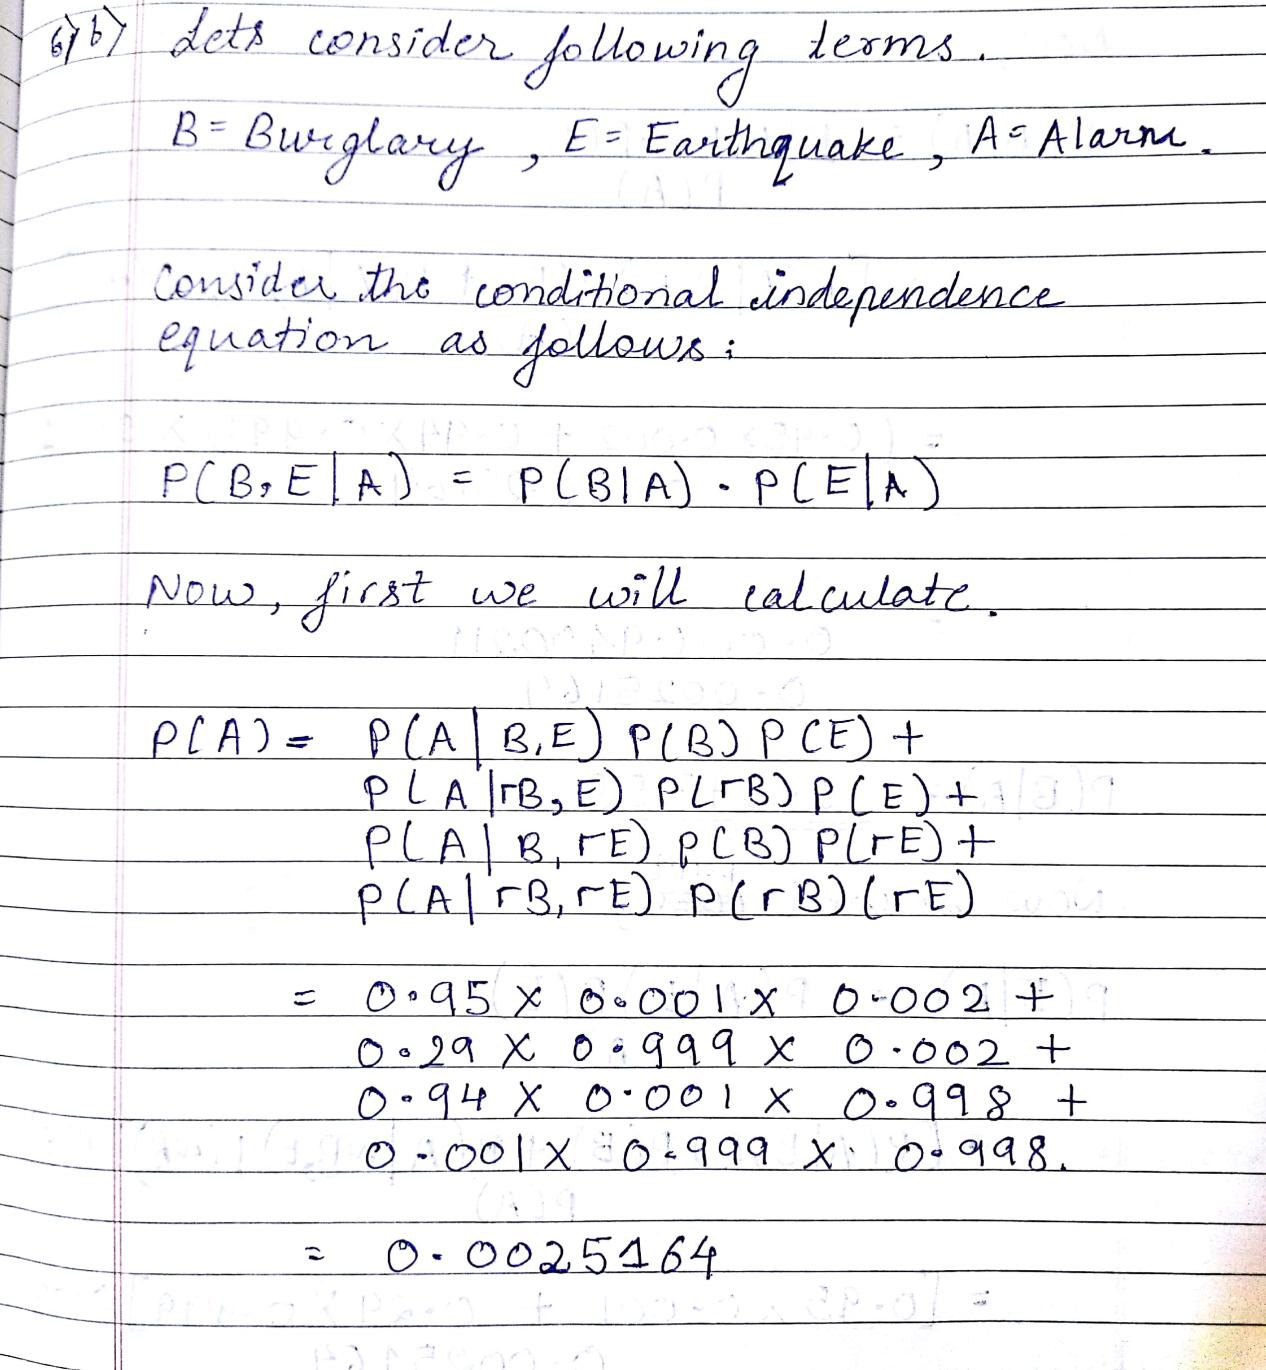 6) b) Lets consider following terms.
B = Burglary , E = Earthquake , A = Alarm.
Consider the conditional independence
equation as follows:
P(B, E | A) = P(B|A) . P(E|A)
Now, first we will calculate.
P(A) = P(A | B, E) P(B) P(E) +
P(A |┌B, E) P(┌B) P(E) +
P(A | B, ┌E) P(B) P(┌E) +
P(A | ┌B, ┌E) P(┌B) (┌E)
= 0.95 x 0.001 x 0.002 +
0.29 x 0.999 x 0.002 +
0.94 x 0.001 x 0.998 +
0.001 x 0.999 x 0.998.
= 0.0025164